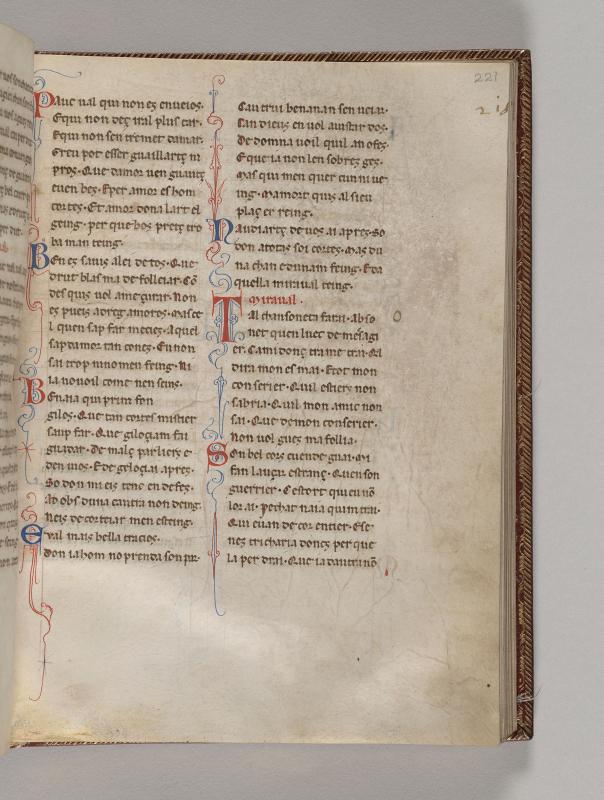 221
Pauc ual qui non es enueios.
Equi non dez iral plus car.
Equi non sen tremet damar.
Greu pot esser guaillartz ni
pros. Que damor uen guaucz
euen bes. Eper amor es hom
cortes. Et amor dona lart el
geing. per que bos pretz tro
ba man teing.
Ben es sauis alei de tos. Que
drut blasma de folleiar. Co
des quis uol amesurar. Non
es pueis adreg amoros. Mas ce
l quen sap far necies. Aquel
sap damor tan cones. Eu non
sai trop ni no men feing. Ni
ia no uoil come nen seing.
Ben aia qui prim fon
gilos. Que tan cortes mistier
saup far. Que gilozia m fai
guardar. De mals parliers e
den uios. E de gelozia apres.
So don mi eis tenc en defes.
Ad obs duna cautra non deing.
Neis de corteiar men esteing.
E ual mais bella traicios.
don ia hom no prenda son par.
Cautrui benanan sen ueiar.
Can dieus en uol aiustar dos.
De domna uoil quil an ofes.
E que ia non len sobres ges.
Mas qui men quer cuniaue
ing. Mamort quis al sieu
plaz er reing.
Naudiartz de uos ai apres. So
don atotas soi cortes. Mas du
na chan e dunam feing. E da
quella miraual teing.
Miraual.
Tal chansoneta farai. Abso
net quen luec de mesagi
er. Cami donz trameterai. El
dira mon esmai. E tot mon
conserier. Quil estiers non
sabria. Quil mon amic non
sai. Que demon conserier.
Non uol gues ma follia.
Son bel cors cuende guai. Mi
fan lauzar estranz. Quen son
guerrier. C estort qui eu no
lor ai. pechat naia quim trai.
Qui euan de cor entier. Ese
nes tricharia donez per que
la per drai. Que ia dautra no